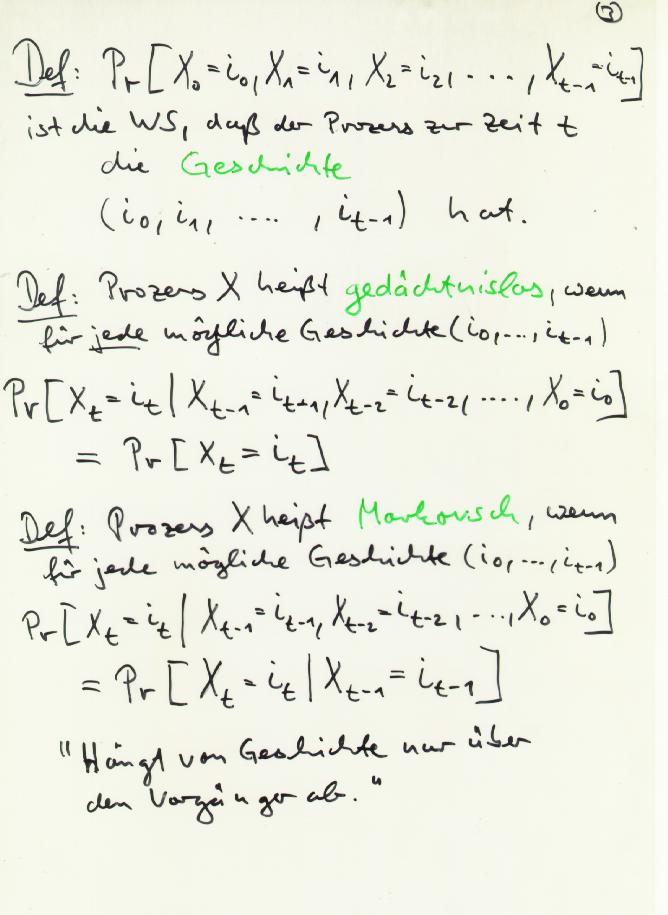 ③
Def: Pr[X₀=i₀, X₁=i₁, X₂=i₂, ..., Xₜ₋₁=iₜ₋₁]
ist die WS, daß der Prozess zur Zeit t
die Geschichte
(i₀, i₁, ...., iₜ₋₁) hat.
Def: Prozess X heißt gedächtnislos, wenn
für jede mögliche Geschichte (i₀,...,iₜ₋₁)
Pr[Xₜ=iₜ | Xₜ₋₁=iₜ₊₁, Xₜ₋₂=iₜ₋₂, ...., X₀=i₀]
= Pr[Xₜ=iₜ]
Def: Prozess X heißt Markovisch, wenn
für jede mögliche Geschichte (i₀,...,iₜ₋₁)
Pr[Xₜ=iₜ | Xₜ₋₁=iₜ₋₁, Xₜ₋₂=iₜ₋₂, ..., X₀=i₀]
= Pr[Xₜ=iₜ | Xₜ₋₁=iₜ₋₁]
"Hängt von Geschichte nur über
den Vorgänger ab."